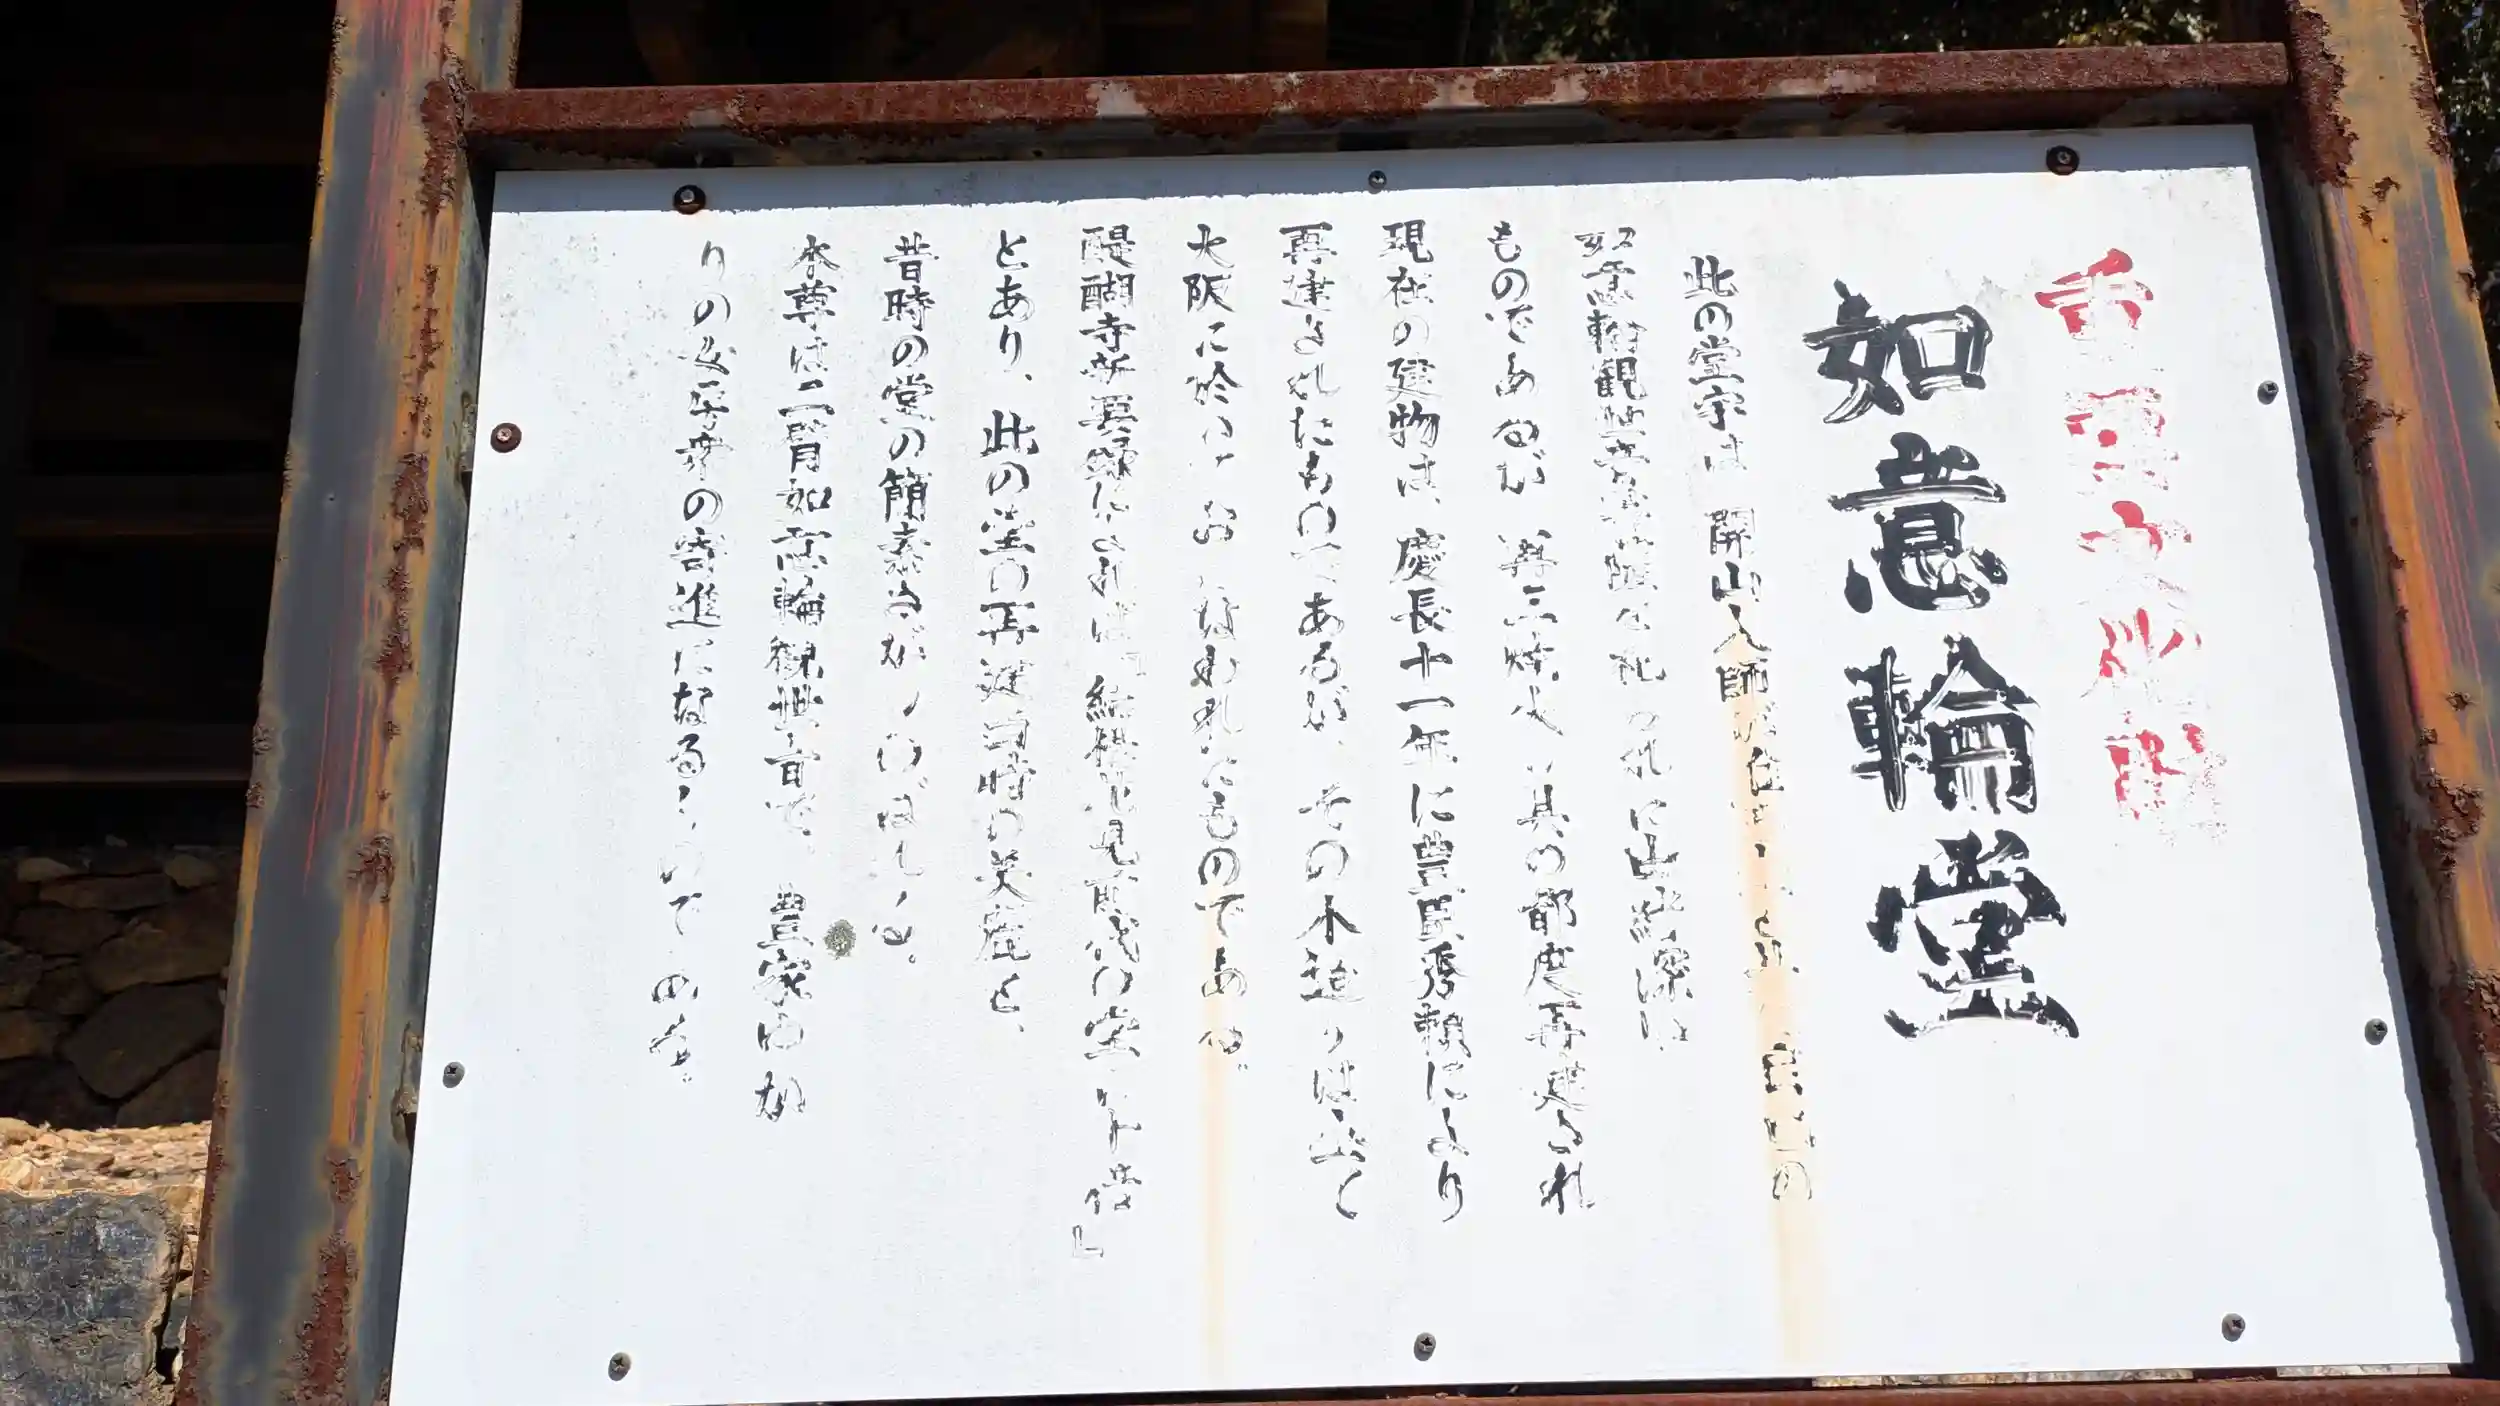 重要文化財
如意輪堂
此の堂宇は 開山大師が
如意輪観世音菩薩を祀られ
ものであるが 再三焼 其の都度再建され
現在の建物は、慶長十一年に豊臣秀頼により
再建されたものであるが、その木造りは
大阪に於て おこなわれたものである。
醍醐寺新要録によれば『結構花見前代の堂 倍』
とあり、此の堂の再建当時の美麗と、
昔時の堂の簡素さが しのばれる。
本尊は二臂如意輪観世音で、 豊家ゆか
りの の寄進になるものである。